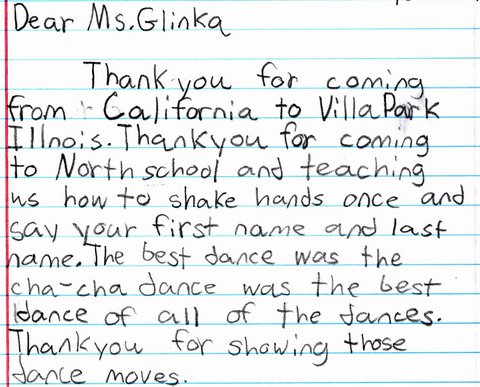 Dear Ms.Glinka
Thank you for coming
from California to Villa Park
Illnois. Thankyou for coming
to North school and teaching
us how to shake hands once and
say your first name and last
name. The best dance was the
cha-cha dance was the best
dance of all of the dances.
Thankyou for showing those
dance moves.